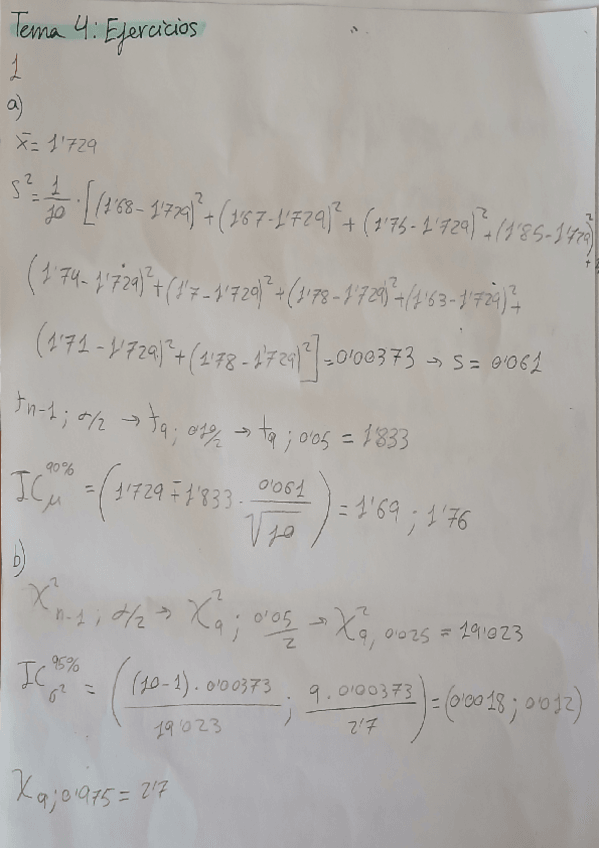 Tema 4: Ejercicios
1
a)
x̄ = 1'729
S² = 1/10 · [(1'68 - 1'729)² + (1'67 - 1'729)² + (1'75 - 1'729)² + (1'85 - 1'729)² +
(1'74 - 1'729)² + (1'7 - 1'729)² + (1'78 - 1'729)² + (1'63 - 1'729)² +
(1'71 - 1'729)² + (1'78 - 1'729)²] = 0'00373 → S = 0'061
t n-1; α/2 → t 9; 0'10/2 → t 9; 0'05 = 1'833
IC μ 90% = (1'729 ∓ 1'833 · 0'061/√10) = 1'69 ; 1'76
b)
χ² n-1; α/2 → χ² 9; 0'05/2 → χ² 9, 0'025 = 19'023
IC σ² 95% = ((10-1) · 0'00373 / 19'023 ; 9 · 0'00373 / 2'7) = (0'0018 ; 0'012)
χ 9; 0'975 = 2'7